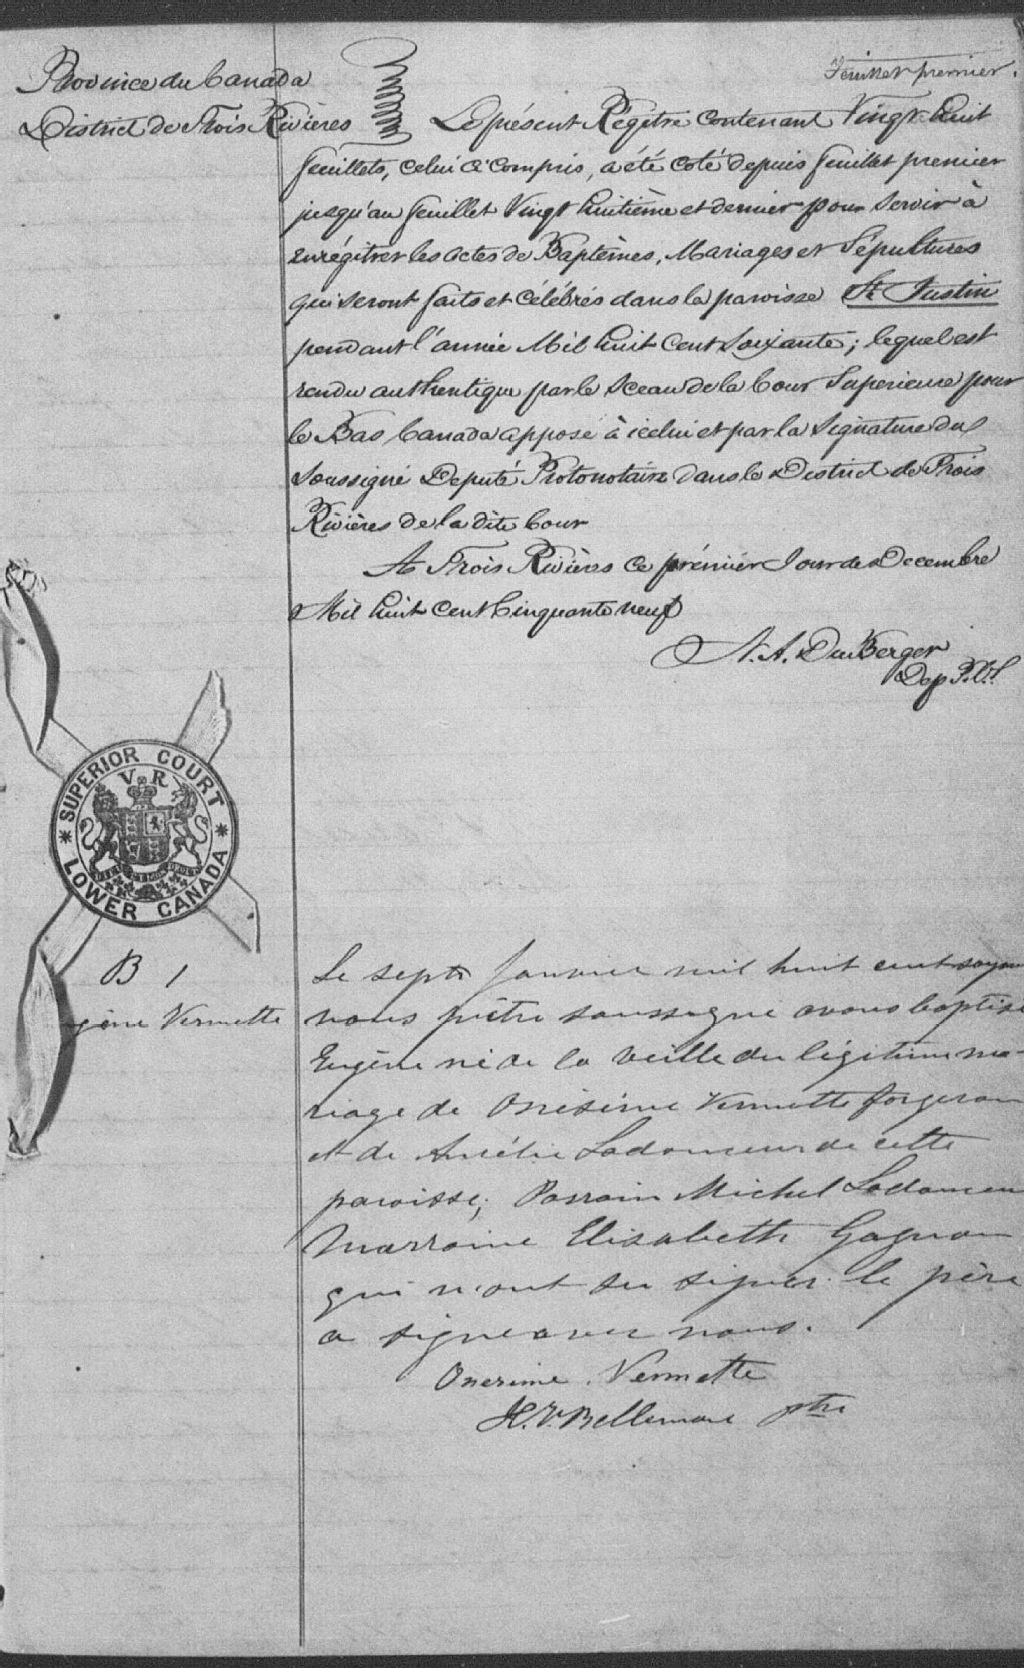 Feuillet premier.
Province du Canada
District de Trois Rivières
Le présent Régitre contenant Vingt huit
feuillets, celui ci compris, a été coté depuis feuillet premier
jusqu'au feuillet Vingt huitième et dernier pour servir à
enrégitrer les actes de Baptêmes, Mariages et Sépultures
qui seront faits et célébrés dans la paroisse St Justin
pendant l'année Mil huit cent Soixante; lequel est
rendu authentique par le Sceau de la Cour Superieure pour
le Bas Canada apposé à icelui et par la Signature du
Soussigné Deputé Protonotaire dans le District de Trois
Rivières de la dite Cour
A Trois Rivières ce prémier Jour de Decembre
Mil huit cent Cinquante neuf
A. A. DuBerger
Dep P.C.S
SUPERIOR COURT
V R
DIEU ET MON DROIT
LOWER CANADA
B 1
gène Vermette
Le sept Janvier mil huit cent soixan
nous prêtre soussigné avons baptisé
Eugène né de la veille du légitime ma-
riage de Onésime Vermette forgeron
et de Amélie Ladouceur de cette
paroisse; Parrain Michel Ladouceur
Marraine Elisabeth Gagnon
qui n'ont su signer. le père
a signé avec nous.
Onesime Vermette
H. V. Bellemare ptre